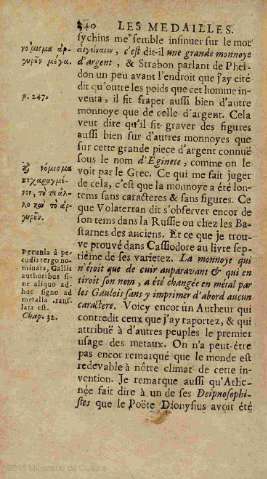 240 LES MEDAILLES.
sychius me semble insinuer sur le mot
αἰγιναῖον, c'est dit-il une grande monnoye
d'argent, & Strabon parlant de Phei-
don un peu avant l'endroit que j'ay cité
dit qu'outre les poids que cet homme in-
venta, il fit fraper aussi bien d'autre
monnoye que de celle d'argent. Cela
veut dire qu'il fit graver des figures
aussi bien sur d'autres monnoyes que
sur cette grande piece d'argent connuë
sous le nom d'Eginete, comme on le
voit par le Grec. Ce qui me fait juger
de cela, c'est que la monnoye a été lon-
tems sans caracteres & sans figures. Ce
que Volaterran dit s'observer encor de
son tems dans la Russie ou chez les Ba-
starnes des anciens. Et ce que je trou-
ve prouvé dans Cassiodore au livre sep-
tiéme de ses varietez. La monnoye qui
n'étoit que de cuir auparavant & qui en
tiroit son nom, a été changée en métal par
les Gaulois sans y imprimer d'abord aucun
caractére. Voicy encor un Autheur qui
contredit ceux que j'ay raportez, & qui
attribuë à d'autres peuples le premier
usage des metaux. On n'a peut-étre
pas encor remarqué que le monde est
redevable à nôtre climat de cette in-
vention. Je remarque aussi qu'Athe-
née fait dire à un de ses Deipnosophi-
stes que le Poëte Dionysius avoit été
νόμισμα ἀρ-
γυρὲν μέγα.
p. 247.
ὲ νόμισμα
τό τε ἄλ-
λο καὶ τὸ ἀρ-
γυρὲν.
Pecunia à pe-
cudis tergo no-
minata, Gallis
authoribus si-
ne aliquo ad-
huc signo ad
metalla trans-
lata est.
Chap. 32.